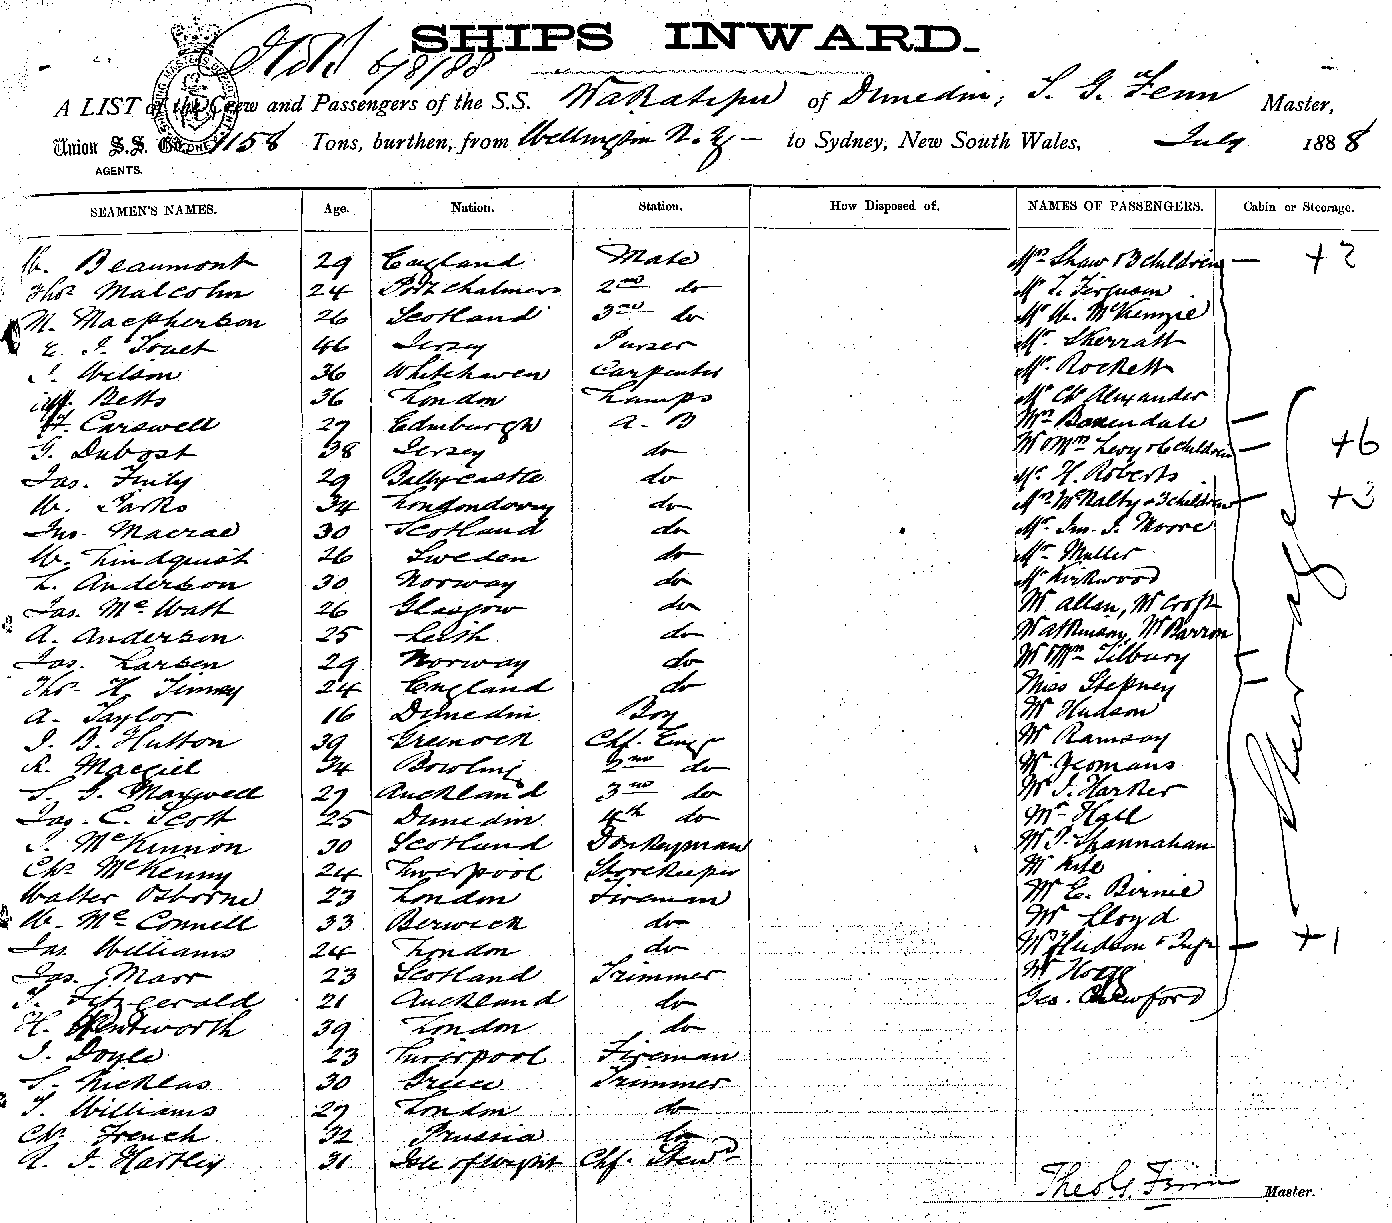 SHIPS INWARD.
6/8/88
A LIST of the Crew and Passengers of the S.S. Wakatipu of Dunedin, T. G. Fenn Master,
Union S.S. Co. 1158 Tons, burthen, from Wellington N. Z. — to Sydney, New South Wales, July 1888
AGENTS.
SEAMEN'S NAMES. Age. Nation. Station. How Disposed of. NAMES OF PASSENGERS. Cabin or Steerage.
W. Beaumont 29 England Mate Mrs Shaw & 3 children — +2
Thos Malcolm 24 Port Chalmers 2nd do Mr T. Ferguson
M. Macpherson 26 Scotland 3rd do Mr W. McKenzie
E. J. Touet 46 Jersey Purser Mr. Skerratt
J. Wilson 36 Whitehaven Carpenter Mr. Rockett
Betts 36 London Lamps Mr Ch Alexander
H. Carswell 27 Edinburgh A. B Mrs Baxendale —
G. Dubost 38 Jersey do Mr & Mrs Levy & 6 children — +6
Jas. Finly 29 Ballycastle do Mr. H. Roberts
W. Parks 34 Londonderry do Mrs McNalty & 3 children — +3
Jno. Macrae 30 Scotland do Mr. Jno. J. Moore
W. Lindquist 26 Sweden do Mr Muller
L. Anderson 30 Norway do Mr Kirkwood
Jas. Mc Watt 26 Glasgow do Mr Allan, Mr Croft
A. Anderson 25 Leith do Mr Atkinson, Mr Barron
Jas. Larsen 29 Norway do Mr & Mrs Tilbury
Thos H. Tinney 24 England do Miss Stepney
A. Taylor 16 Dunedin Boy Mr Hudson
J. B. Hutton 39 Greenock Chf. Engr Mr Ramsay
R. Macgill 34 Bowling 2nd do Mr Yeomans
S. J. Maxwell 27 Auckland 3rd do Mr J. Harker
Jas. C. Scott 25 Dunedin 4th do Mr Hall
J. McKinnon 30 Scotland Donkeyman Mr P. Shannahan
Chs McKenny 24 Liverpool Storekeeper Mr Kite
Walter Osborne 23 London Fireman Mr E. Birnie
W. Mc Connell 33 Berwick do Mr Lloyd
Jas Williams 24 London do Mr Hudson & — +1
Jas. Marr 23 Scotland Trimmer Mr Hogg
T. Fitzgerald 21 Auckland do Geo. Crawford
H. Wentworth 39 London do
J. Doyle 23 Liverpool Fireman
S. Nicklas 30 Greece Trimmer
T. Williams 27 London do
Chs. French 32 Prussia do
A. J. Hartley 31 Isle of Wight Chf. Stewd
Steerage
Theo G. Fenn Master.